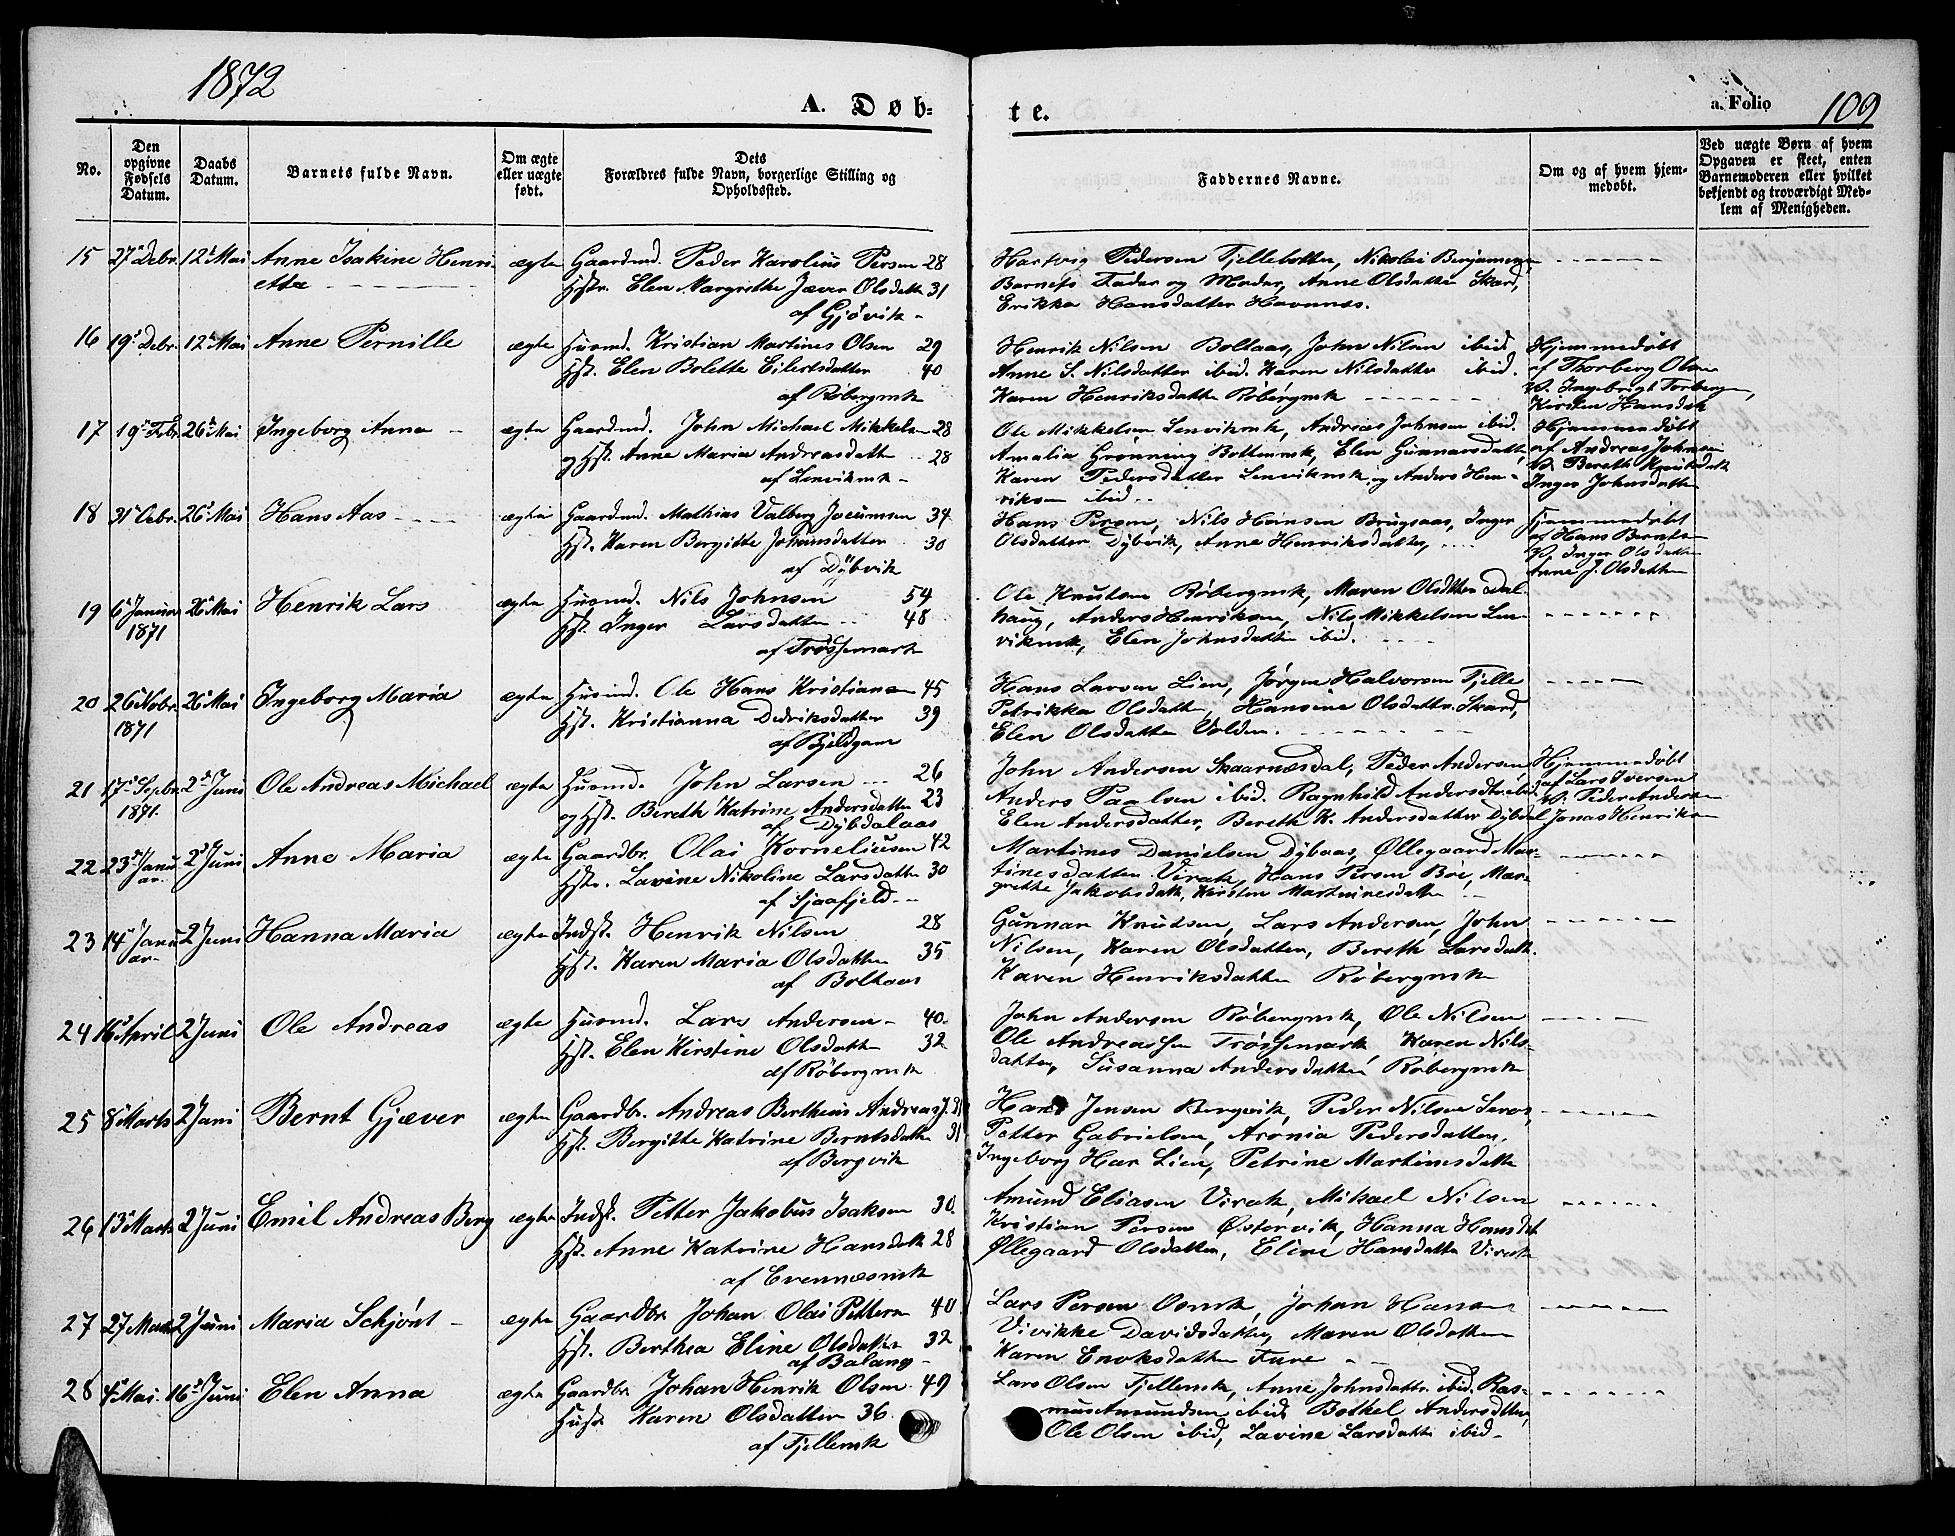 1872
A. Døb-
te.
a. Folio 109
No.
Den opgivne Fødsels Datum.
Daabs Datum.
Barnets fulde Navn.
Om ægte eller uægte født.
Dets Forældres fulde Navn, borgerlige Stilling og Opholdssted.
Faddernes Navne.
Om og af hvem hjemmedøbt.
Ved uægte Børn af hvem Opgaven er skeet, enten Barnemoderen eller hvilket bekjendt og troværdigt Medlem af Menigheden.
15 27 Debr. 12 Mai Anne Isakine Henri- ægte Gaardmd. Peder Karolius Persen 28
etta Hstr. Elen Margrethe Jæver Olsdatter 31
af Gjövik
Hartvig Pedersen Fjellebotten, Nikolai Benjaminsen
Barnets Fader og Moder, Anne Olsdatter Skard,
Erikka Hansdatter Havnnæs.
16 19 Debr. 12 Mai Anne Pernille ægte Husmd. Kristian Martines Olsen 29
Hst. Elen Bolette Eilertsdatter 40
af Röbergmk
Henrik Nilsen Boltaas, John Nilsen ibid. Hjemmedøbt
Anne S. Nilsdatter ibid. Karen Nilsdatter ibid. af Thorberg Olsen
Karen Henriksdatter Röbergmk V. Ingebrigt Torbergen,
Kirsten Hansdatt
17 19 Febr. 26 Mai Ingeborg Anna ægte Gaardmd. John Michael Mikkelsen 28
og Hst. Anne Maria Andreasdatter 28
af Lenvikmk
Ole Mikkelsen Lenvikmk, Andreas Johnsen ibid. Hjemmedøbt
Amalia Grönning Bottenmk, Elen Gunnarsdatter, af Andreas Johnsen
Karen Pedersdatter Lenvikmk og Anders Hen- V. Bereth Knutsdatt
riksen ibid. Inger Johnsdatter
18 31 Debr. 26 Mai Hans Aas ægte Gaardmd. Mathias Valberg Jocumsen 34
Hst. Karen Bergitte Johnsdatter 30
af Dÿbvik
Hans Persen, Nils Hansen Brugsaas, Inger Hjemmedøbt
Olsdatter Dybvik, Anne Henriksdatter, af Hans Berntsen
V. Inger Olsdatter
Anne J. Olsdatter
19 6 Januar 26 Mai Henrik Lars ægte Husmd. Nils Johnsen 54
1871 Hst. Inger Larsdatter 48
af Trössemark
Ole Knutsen Röbergmk, Maren Olsdtter Dal-
haug, Anders Henriksen, Nils Mikkelsen Len-
vikmk, Elen Johnsdatter ibid.
20 26 Nobr. 26 Mai Ingeborg Maria ægte Husmd. Ole Hans Kristiansen 45
1871 Hst. Kristianna Dedriksdatter 39
af Bjeldgam
Hans Larsen Lien, Jörgen Halvorsen Fjelle
Petrikka Olsdatter, Hansine Olsdatter Skard,
Elen Olsdatter Volden.
21 17 Septbr. 2 Juni Ole Andreas Michael ægte Husmd. John Larsen 26
1871. og Hst. Bereth Katrine Andersdatter 23
af Dÿbdalaas
John Andersen Skaarnæsdal, Peder Andersen, Hjemmedøbt
Anders Paalsen ibid. Ragnhild Andersdtr. ibid. af Lars Iversen
Elen Andersdatter, Bereth K. Andersdatter Dÿbdal V. Peder Andersen
Jonas Henriksen
22 23 Janu- 2 Juni Anne Maria ægte Gaardbr. Olai Korneliusen 42
ar. Hstr. Lavine Nikoline Larsdatter 30
af Sjaafjeld
Martines Danielsen Dÿbaas, Øllegaard Mar-
tinesdatter Virak, Hans Persen Böe, Mar-
grethe Jakobsdatt, Kirsten Martinnesdatter
23 14 Janu- 2 Juni Hanna Maria ægte Indst. Henrik Nilsen 28
ar Hst. Karen Maria Olsdatter 35
af Boltaas
Gunnar Knudsen, Lars Andersen, John
Nilsen, Karen Olsdatter, Bereth Larsdatt.
Karen Henriksdatter Röbergmk
24 16 April 2 Juni Ole Andreas ægte Husmd. Lars Andersen 40.
Hst. Elen Kirstine Olsdatter 32
af Röbergmk
John Andersen Röbergmk, Ole Nilsen
Ole Andreassen Trössemark Karen Nils-
datter, Susanna Andersdatter Röbergmk
25 8 Marts 2 Juni Bernt Gjæver ægte Gaardbr. Andreas Bertheus Andreass. 31
Hst. Bergitte Katrine Berntsdatter 31
af Bergvik
Hans Jensen Bergvik, Peder Nilsen
Petter Gabrielsen, Aronia Pedersdatter,
Ingeborg Har Lien, Petrine Martinesdatter
26 13 Marts 2 Juni Emil Andreas Berg ægte Indst. Petter Jakobus Isaksen 30.
Hst. Anne Katrine Hansdatt 28
af Evennæsmk
Amund Eliasen Virak, Mikael Nilsen
Kristian Persen Östervik, Hanna Hansdtt
Øllegaard Olsdatter, Eline Hansdatter Virak
27 27 Marts 2 Juni Maria Schjönt ægte Gaardbr. Johan Olai Pettersen 40
Hst. Berthea Eline Olsdatter 32
af Balang
Lars Persen Osmk, Johan Hansen
Vivikke Davidsdatter, Maren Olsdatter
Karen Enoksdatter Fure
28 4 Mai 16 Juni Elen Anna ægte Gaardbr. Johan Henrik Olsen 49
Hustr. Karen Olsdatter 36
af Fjellemk
Lars Olsen Fjellemk, Anne Johnsdatter ibid. Ras-
mus Amundsen ibid. Bothel Andersdtter,
Ole Olsen ibid, Lavine Larsdatter ibid.